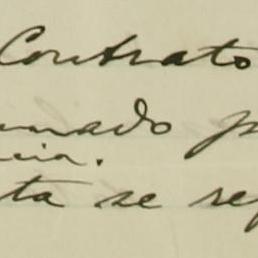 Contrato
mado p
cia.
ta se re